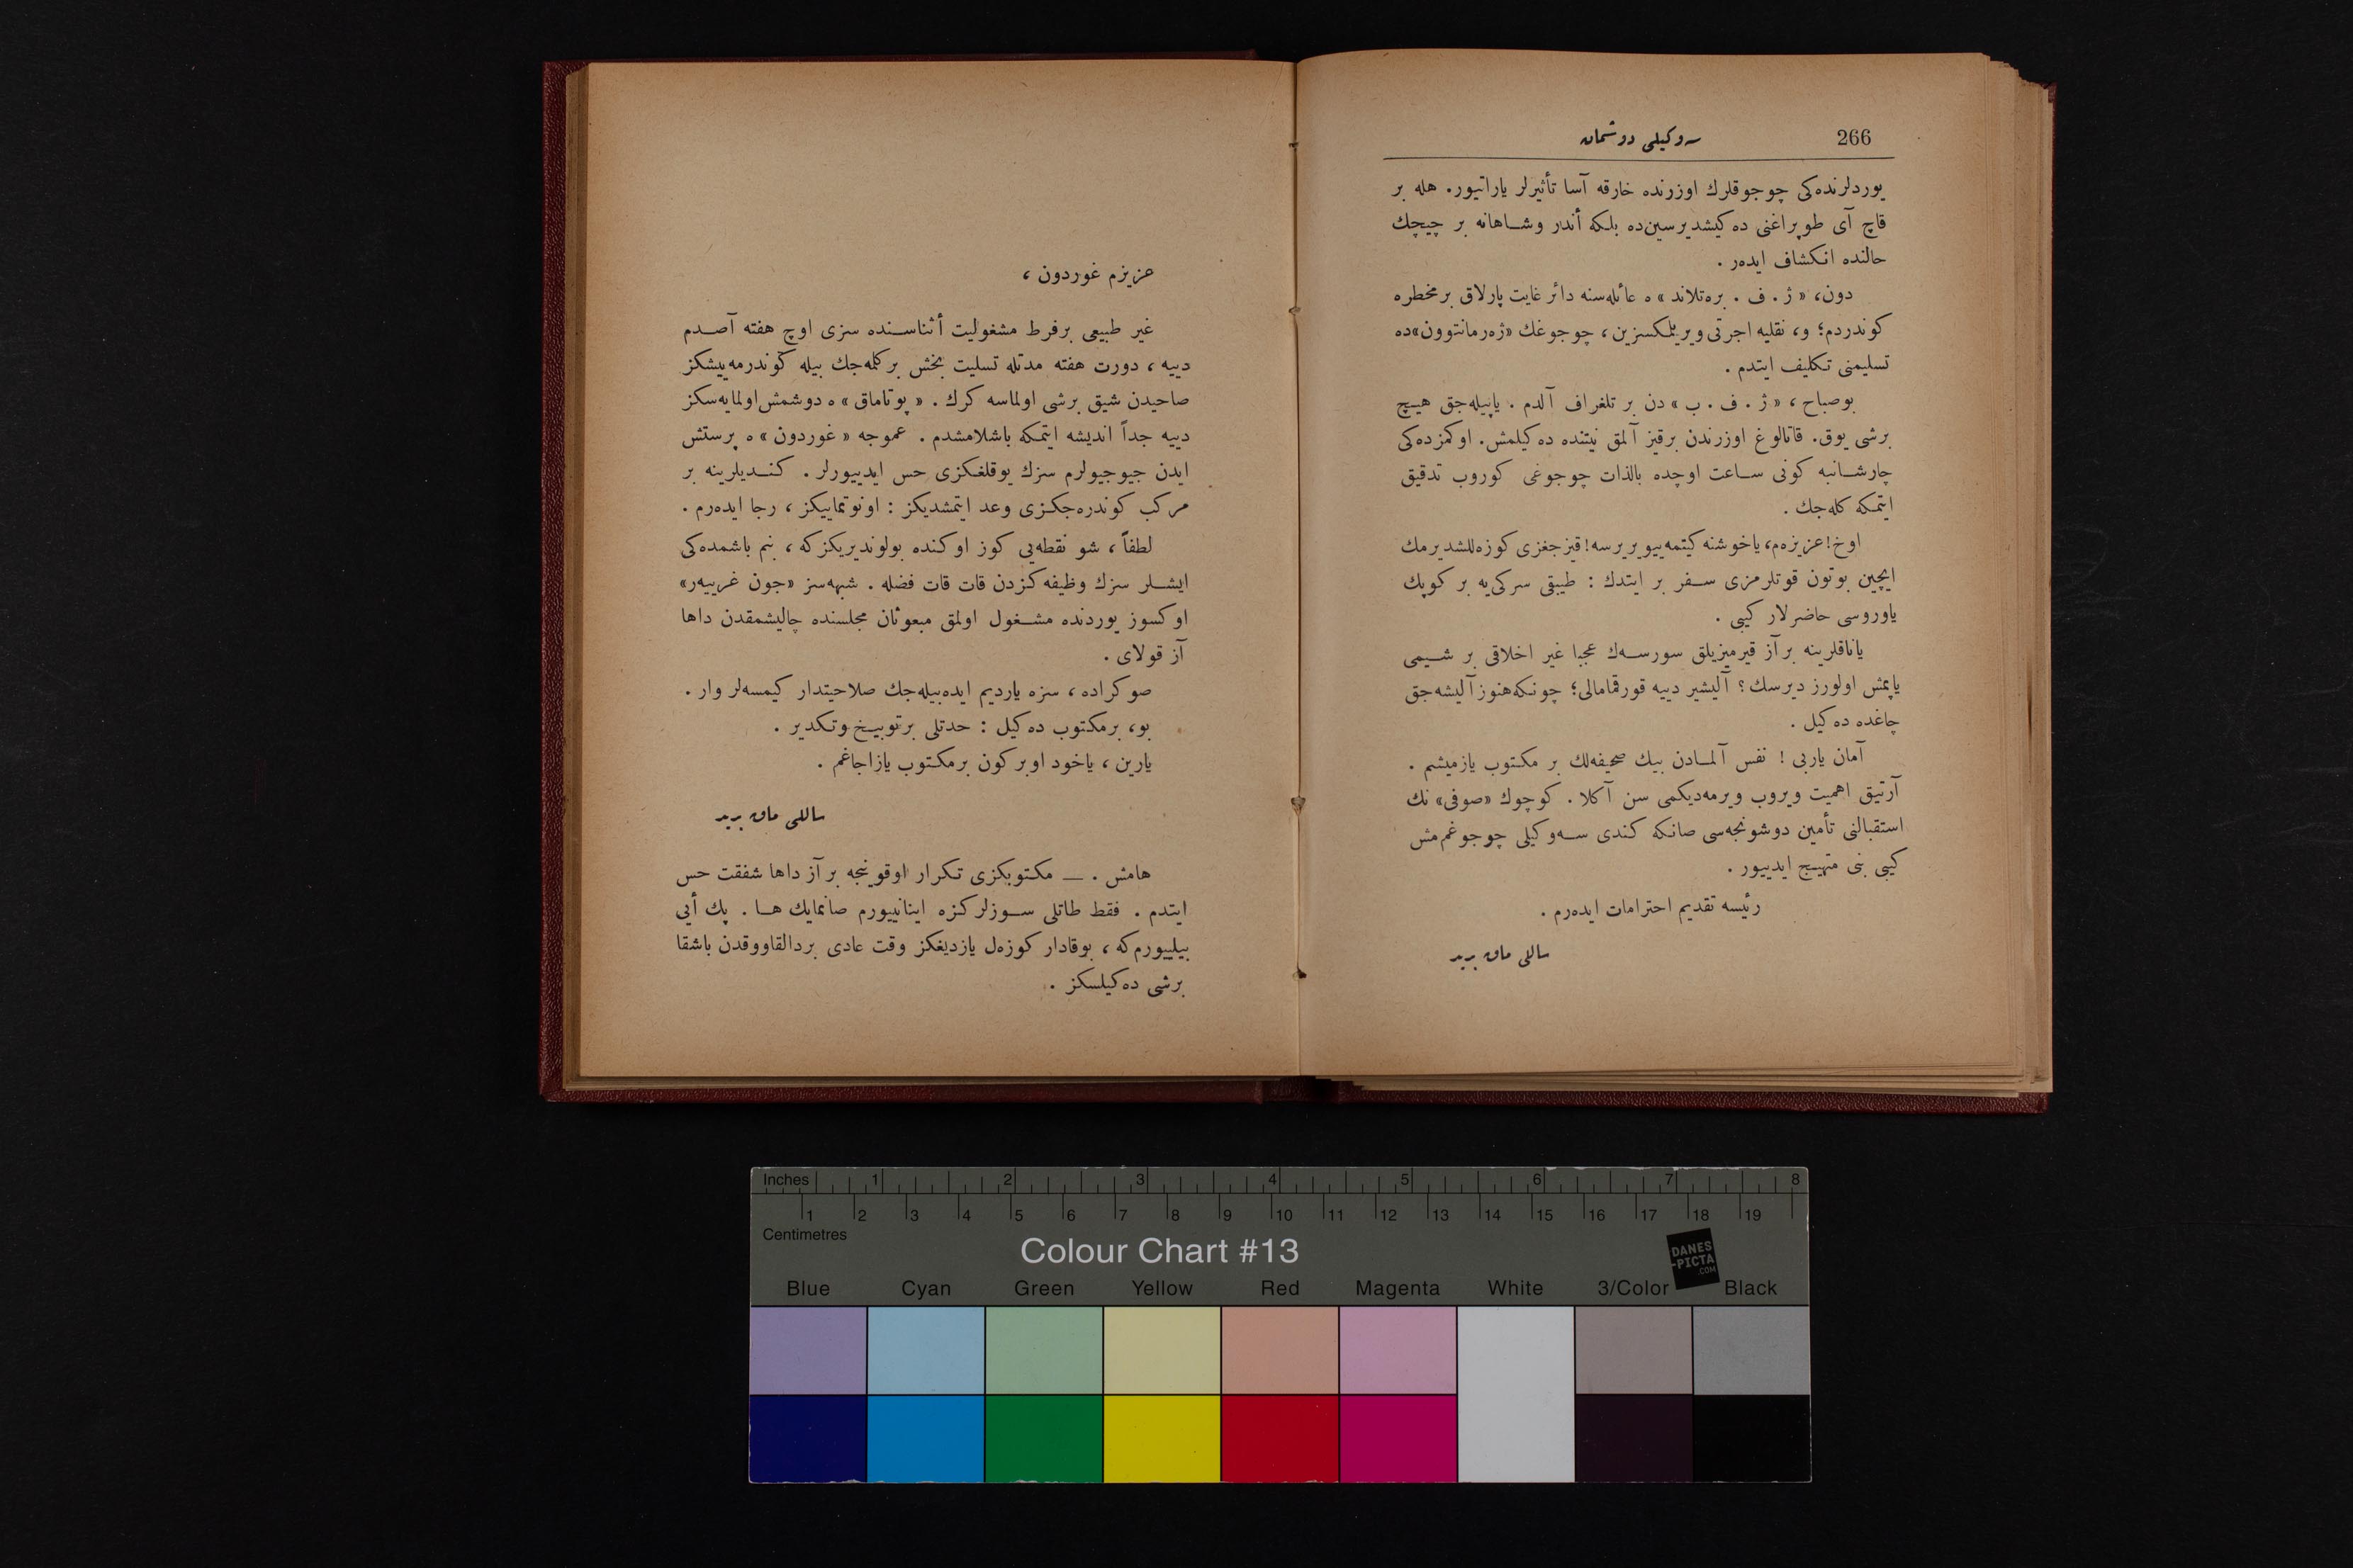 266
سه‌وكيلى دوشمان
يوردلرنده‌كى چوجوقلرك اوزرنده خارقه آسا تأثيرلر ياراتيور. هله بر
قاچ آى طوپراغنى ده‌كيشديرسين‌ده بلكه أندر وشاهانه بر چيچك
حالنده انكشاف ايده‌ر .
دون، « ژ . ف . بره‌تلاند » ه عائله‌سنه دائر غايت پارلاق برمخطره
كوندردم؛ و، نقليه اجرتى ويريلمكسزين، چوجوغك «ژه‌رمانتوون»ده
تسليمنى تكليف ايتدم .
بوصباح، « ژ . ف . ب » دن بر تلغراف آلدم . ياپيله‌جق هيچ
برشى يوق. قاتالوغ اوزرندن برقيز آلمق نيتنده ده‌كيلمش. اوكمزده‌كى
چارشانبه كونى ساعت اوچده بالذات چوجوغى كوروب تدقيق
ايتمكه كله‌جك .
اوخ! عزيزه‌م، ياخوشنه كيتمه‌ييويريرسه! قيزجغزى كوزه‌للشديرمك
ايچين بوتون قوتلرمزى سفر بر ايتدك : طبيقى سركى‌يه بر كوپك
ياوروسى حاضرلار كيبى .
ياناقلرينه برآز قيرميزيلق سورسه‌ك عجبا غير اخلاقى بر شيمى
ياپمش اولورز ديرسك؟ آليشير دييه قورقمامالى؛ چونكه‌هنوز آليشه‌جق
چاغده ده‌كيل .
آمان ياربى ! نفس آلمادن بيك صحيفه‌لك بر مكتوب يازميشم .
آرتيق اهميت ويروب ويرمه‌ديكمى سن آكلا . كوچوك «صوفى» نك
استقبالنى تأمين دوشونجه‌سى صانكه كندى سه‌وكيلى چوجوغم‌مش
كيبى بنى متهيج ايدييور .
رئيسه تقديم احترامات ايده‌رم .
ساللى ماق بريد
عزيزم غوردون ،
غير طبيعى برفرط مشغوليت أثناسنده سزى اوچ هفته آصدم
دييه ، دورت هفته مدتله تسليت بخش بركلمه‌جك بيله كوندرمه‌ييشكز
صاحيدن شيق برشى اولماسه كرك . « پوتاماق » ه دوشمش‌اولمايه‌سكز
دييه جداً انديشه ايتمكه باشلامشدم . عموجه « غوردون » ه پرستش
ايدن جيوجيولرم سزك يوقلغكزى حس ايدييورلر . كنديلرينه بر
مركب كوندره‌جكزى وعد ايتمشديكز : اونوتماييكز ، رجا ايده‌رم .
لطفاً ، شو نقطه‌يى كوز اوكنده بولونديريكزكه ، بنم باشمده‌كى
ايشلر سزك وظيفه‌كزدن قات قات فضله . شبهه‌سز «جون غرييه‌ر»
اوكسوز يوردنده مشغول اولمق مبعوثان مجلسنده چاليشمقدن داها
آز قولاى .
صوكراده ، سزه يارديم ايده‌بيله‌جك صلاحيتدار كيمسه‌لر وار .
بو، برمكتوب ده‌كيل : حدتلى برتوبيخ‌وتكدير .
يارين ، ياخود اوبركون برمكتوب يازاجاغم .
ساللى ماق بريد
هامش . — مكتوبكزى تكرار اوقوينجه برآز داها شفقت حس
ايتدم . فقط طاتلى سوزلركزه اينانييورم صانمايك ها . پك أيى
بيلييورم‌كه ، بوقادار كوزه‌ل يازديغكز وقت عادى بردالقاووقدن باشقا
برشى ده‌كيلسكز .
Inches 1 2 3 4 5 6 7 8
1 2 3 4 5 6 7 8 9 10 11 12 13 14 15 16 17 18 19
Centimetres
Colour Chart #13
DANES
-PICTA
.COM
Blue Cyan Green Yellow Red Magenta White 3/Color Black